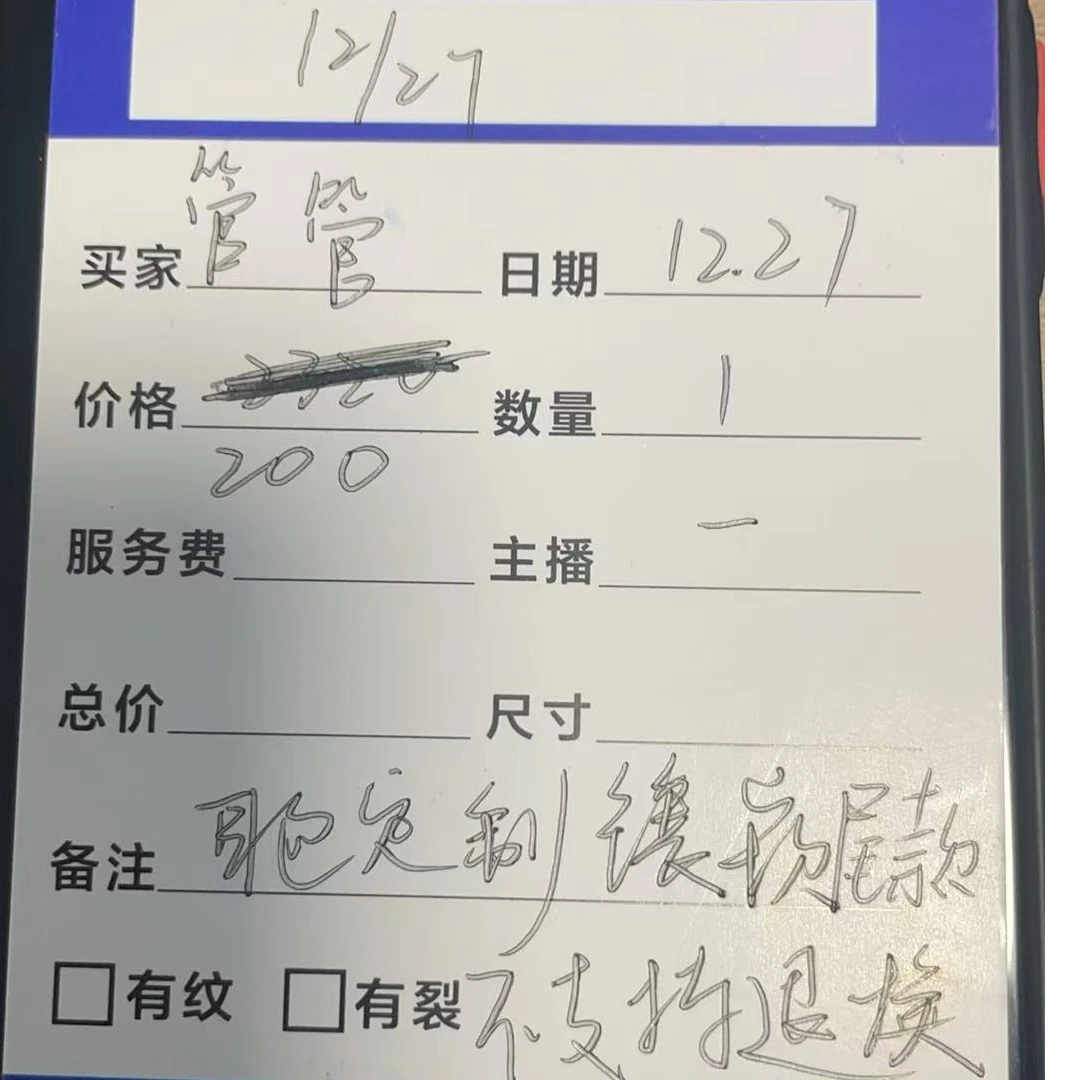 12/27
买家 管管 日期 12.27
价格 3320 数量 1
200
服务费 主播 一
总价 尺寸
备注 定制镶 尾款
有纹 有裂 不支持退换